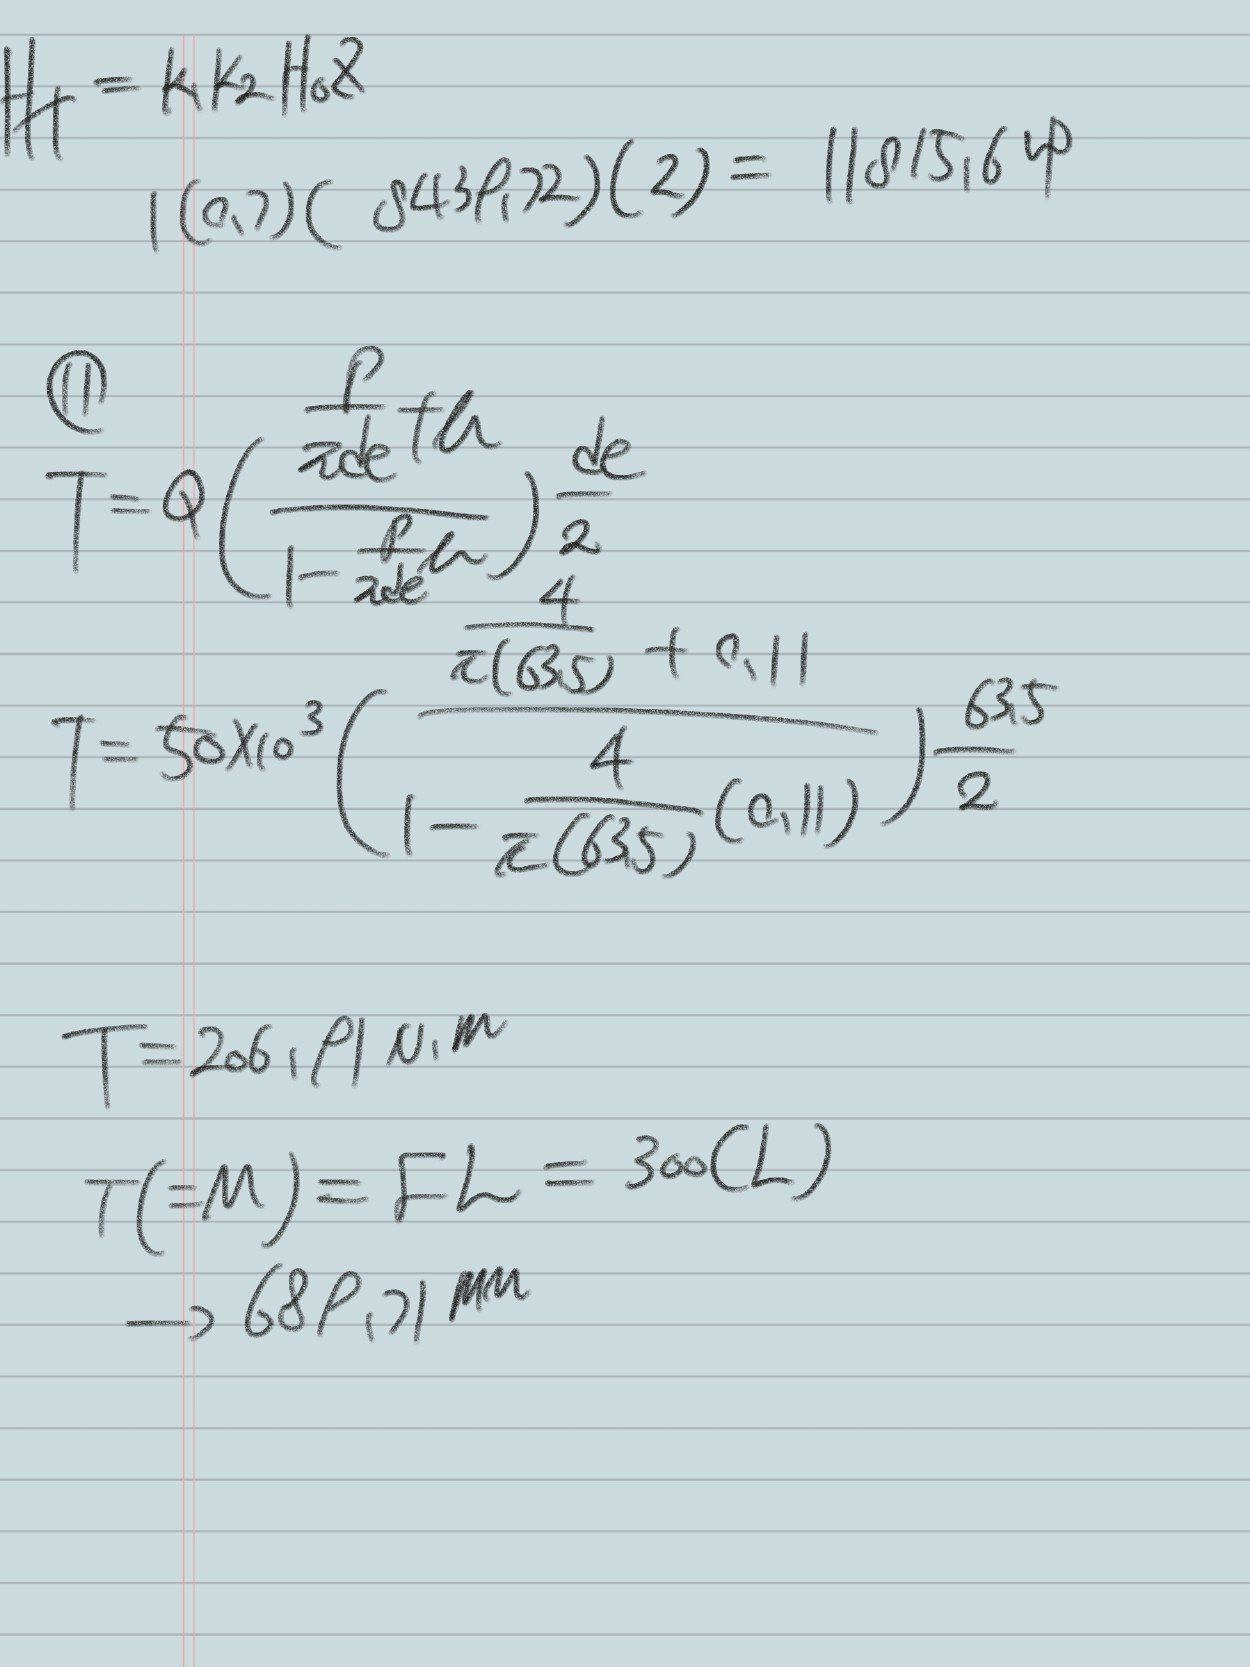 H_T = k₁k₂H₀Z
1(0.7)(8439.72)(2) = 11815.6 kP
⑪
T = Q((p/πde + μ)/(1 - p/πde μ)) de/2
T = 50×10³((4/π(63.5) + 0.11)/(1 - 4/π(63.5) (0.11))) 63.5/2
T = 206.91 N.m
T(=M) = FL = 300(L)
→ 689.71 mm